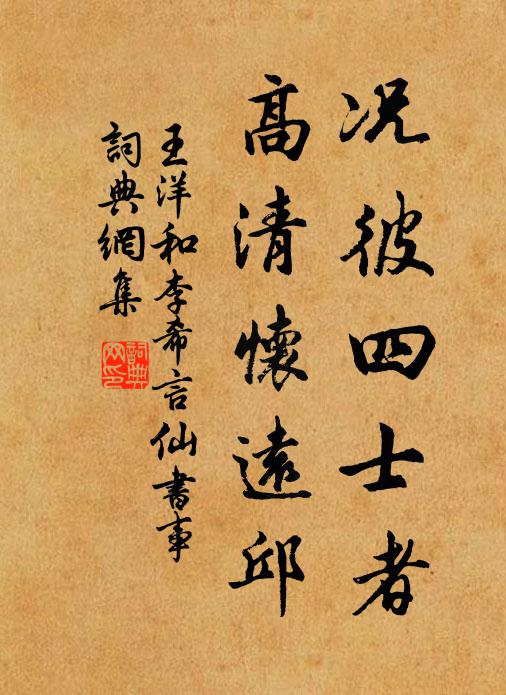 况彼四士者
高清懷遠邱
王洋和李希言仙書事
詞典網集
詞典網印